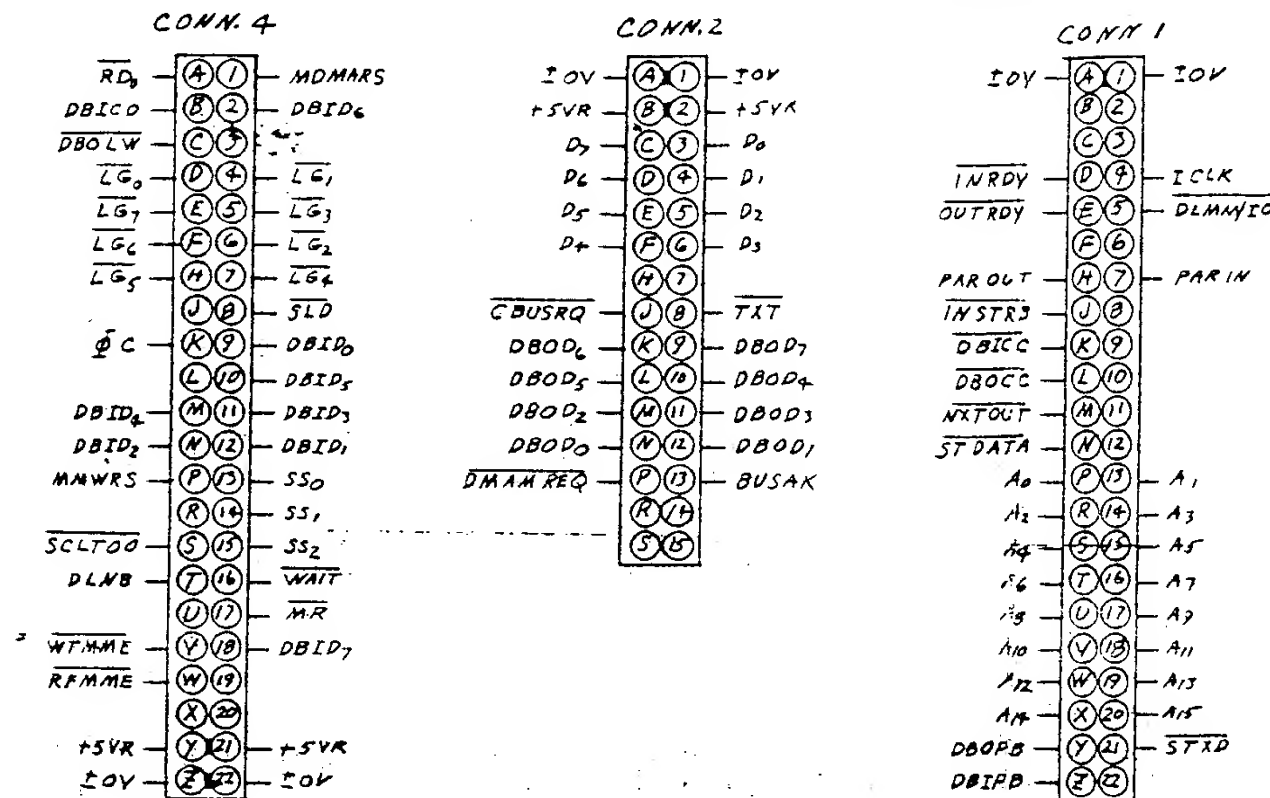 CONN. 4
R̅D̅₃ A 1 MDMARS
DBICO B 2 DBID₆
D̅B̅O̅L̅W̅ C 3
L̅G̅₀ D 4 L̅G̅₁
L̅G̅₇ E 5 L̅G̅₃
L̅G̅₆ F 6 L̅G̅₂
L̅G̅₅ H 7 L̅G̅₄
J 8 S̅L̅D̅
Φ̅C K 9 DBID₀
L 10 DBID₅
DBID₄ M 11 DBID₃
DBID₂ N 12 DBID₁
MMWRS P 13 SS₀
R 14 SS₁
S̅C̅L̅T̅O̅O̅ S 15 SS₂
DLNB T 16 W̅A̅I̅T̅
U 17 M̅R̅
W̅T̅M̅M̅E̅ V 18 DBID₇
R̅F̅M̅M̅E̅ W 19
X 20
+5VR Y 21 +5VR
±0V Z 22 ±0V
CONN. 2
±0V A 1 ±0V
+5VR B 2 +5VR
D₇ C 3 D₀
D₆ D 4 D₁
D₅ E 5 D₂
D₄ F 6 D₃
H 7
C̅B̅U̅S̅R̅Q̅ J 8 T̅X̅T̅
DBOD₆ K 9 DBOD₇
DBOD₅ L 10 DBOD₄
DBOD₂ M 11 DBOD₃
DBOD₀ N 12 DBOD₁
D̅M̅A̅M̅ R̅E̅Q̅ P 13 BUSAK
R 14
S 15
CONN 1
±0V A 1 ±0V
B 2
C 3
I̅N̅R̅D̅Y̅ D 4 ICLK
O̅U̅T̅R̅D̅Y̅ E 5 D̅L̅M̅N̅/̅I̅O̅
F 6
PAR OUT H 7 PAR IN
I̅N̅S̅T̅R̅3̅ J 8
D̅B̅I̅C̅C̅ K 9
D̅B̅O̅C̅C̅ L 10
N̅X̅T̅O̅U̅T̅ M 11
S̅T̅ D̅A̅T̅A̅ N 12
A₀ P 13 A₁
A₂ R 14 A₃
A₄ S 15 A₅
A₆ T 16 A₇
U 17 A₉
A₁₀ V 18 A₁₁
A₁₂ W 19 A₁₃
A₁₄ X 20 A₁₅
DBOPB Y 21 S̅T̅X̅D̅
DBIPB Z 22